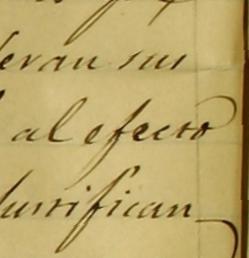 eran sus
al efecto
justifican